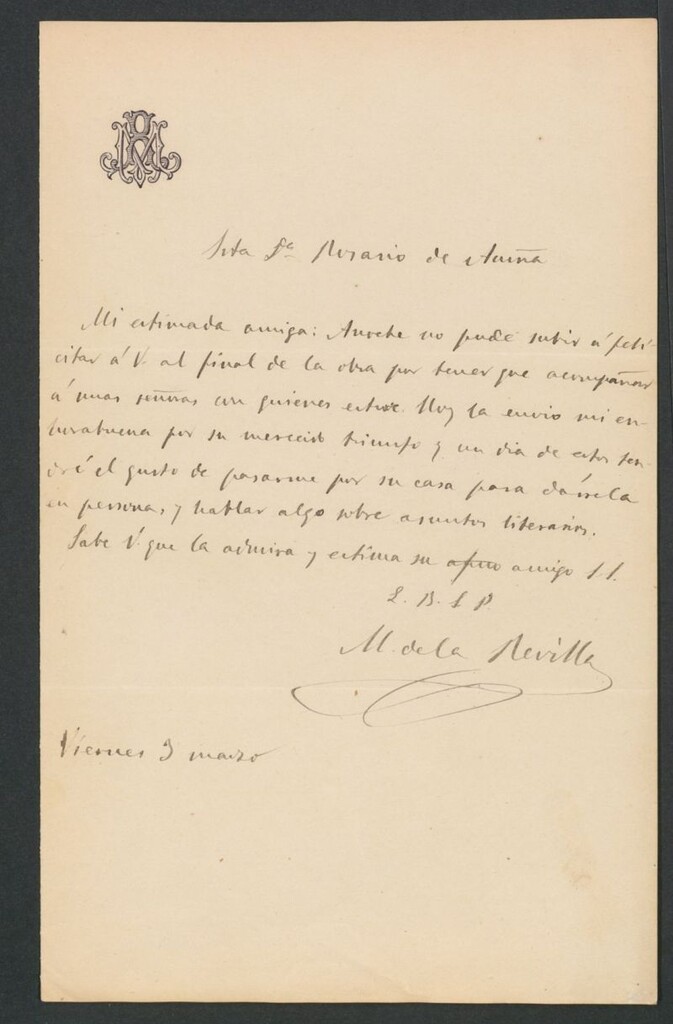 Srta Dª Rosario de Acuña
Mi estimada amiga: Anoche no pude subir á feli-
citar á V. al final de la obra por tener que acompañar
á unas señoras con quienes estuve. Hoy la envio mi en-
horabuena por su merecido triunfo y un dia de estos ten-
dré el gusto de pasarme por su casa para dársela
en persona, y hablar algo sobre asuntos literarios.
Sabe V. que la admira y estima su afmo amigo S. S.
Q. B. S. P.
M. de la Revilla
Viernes 3 marzo